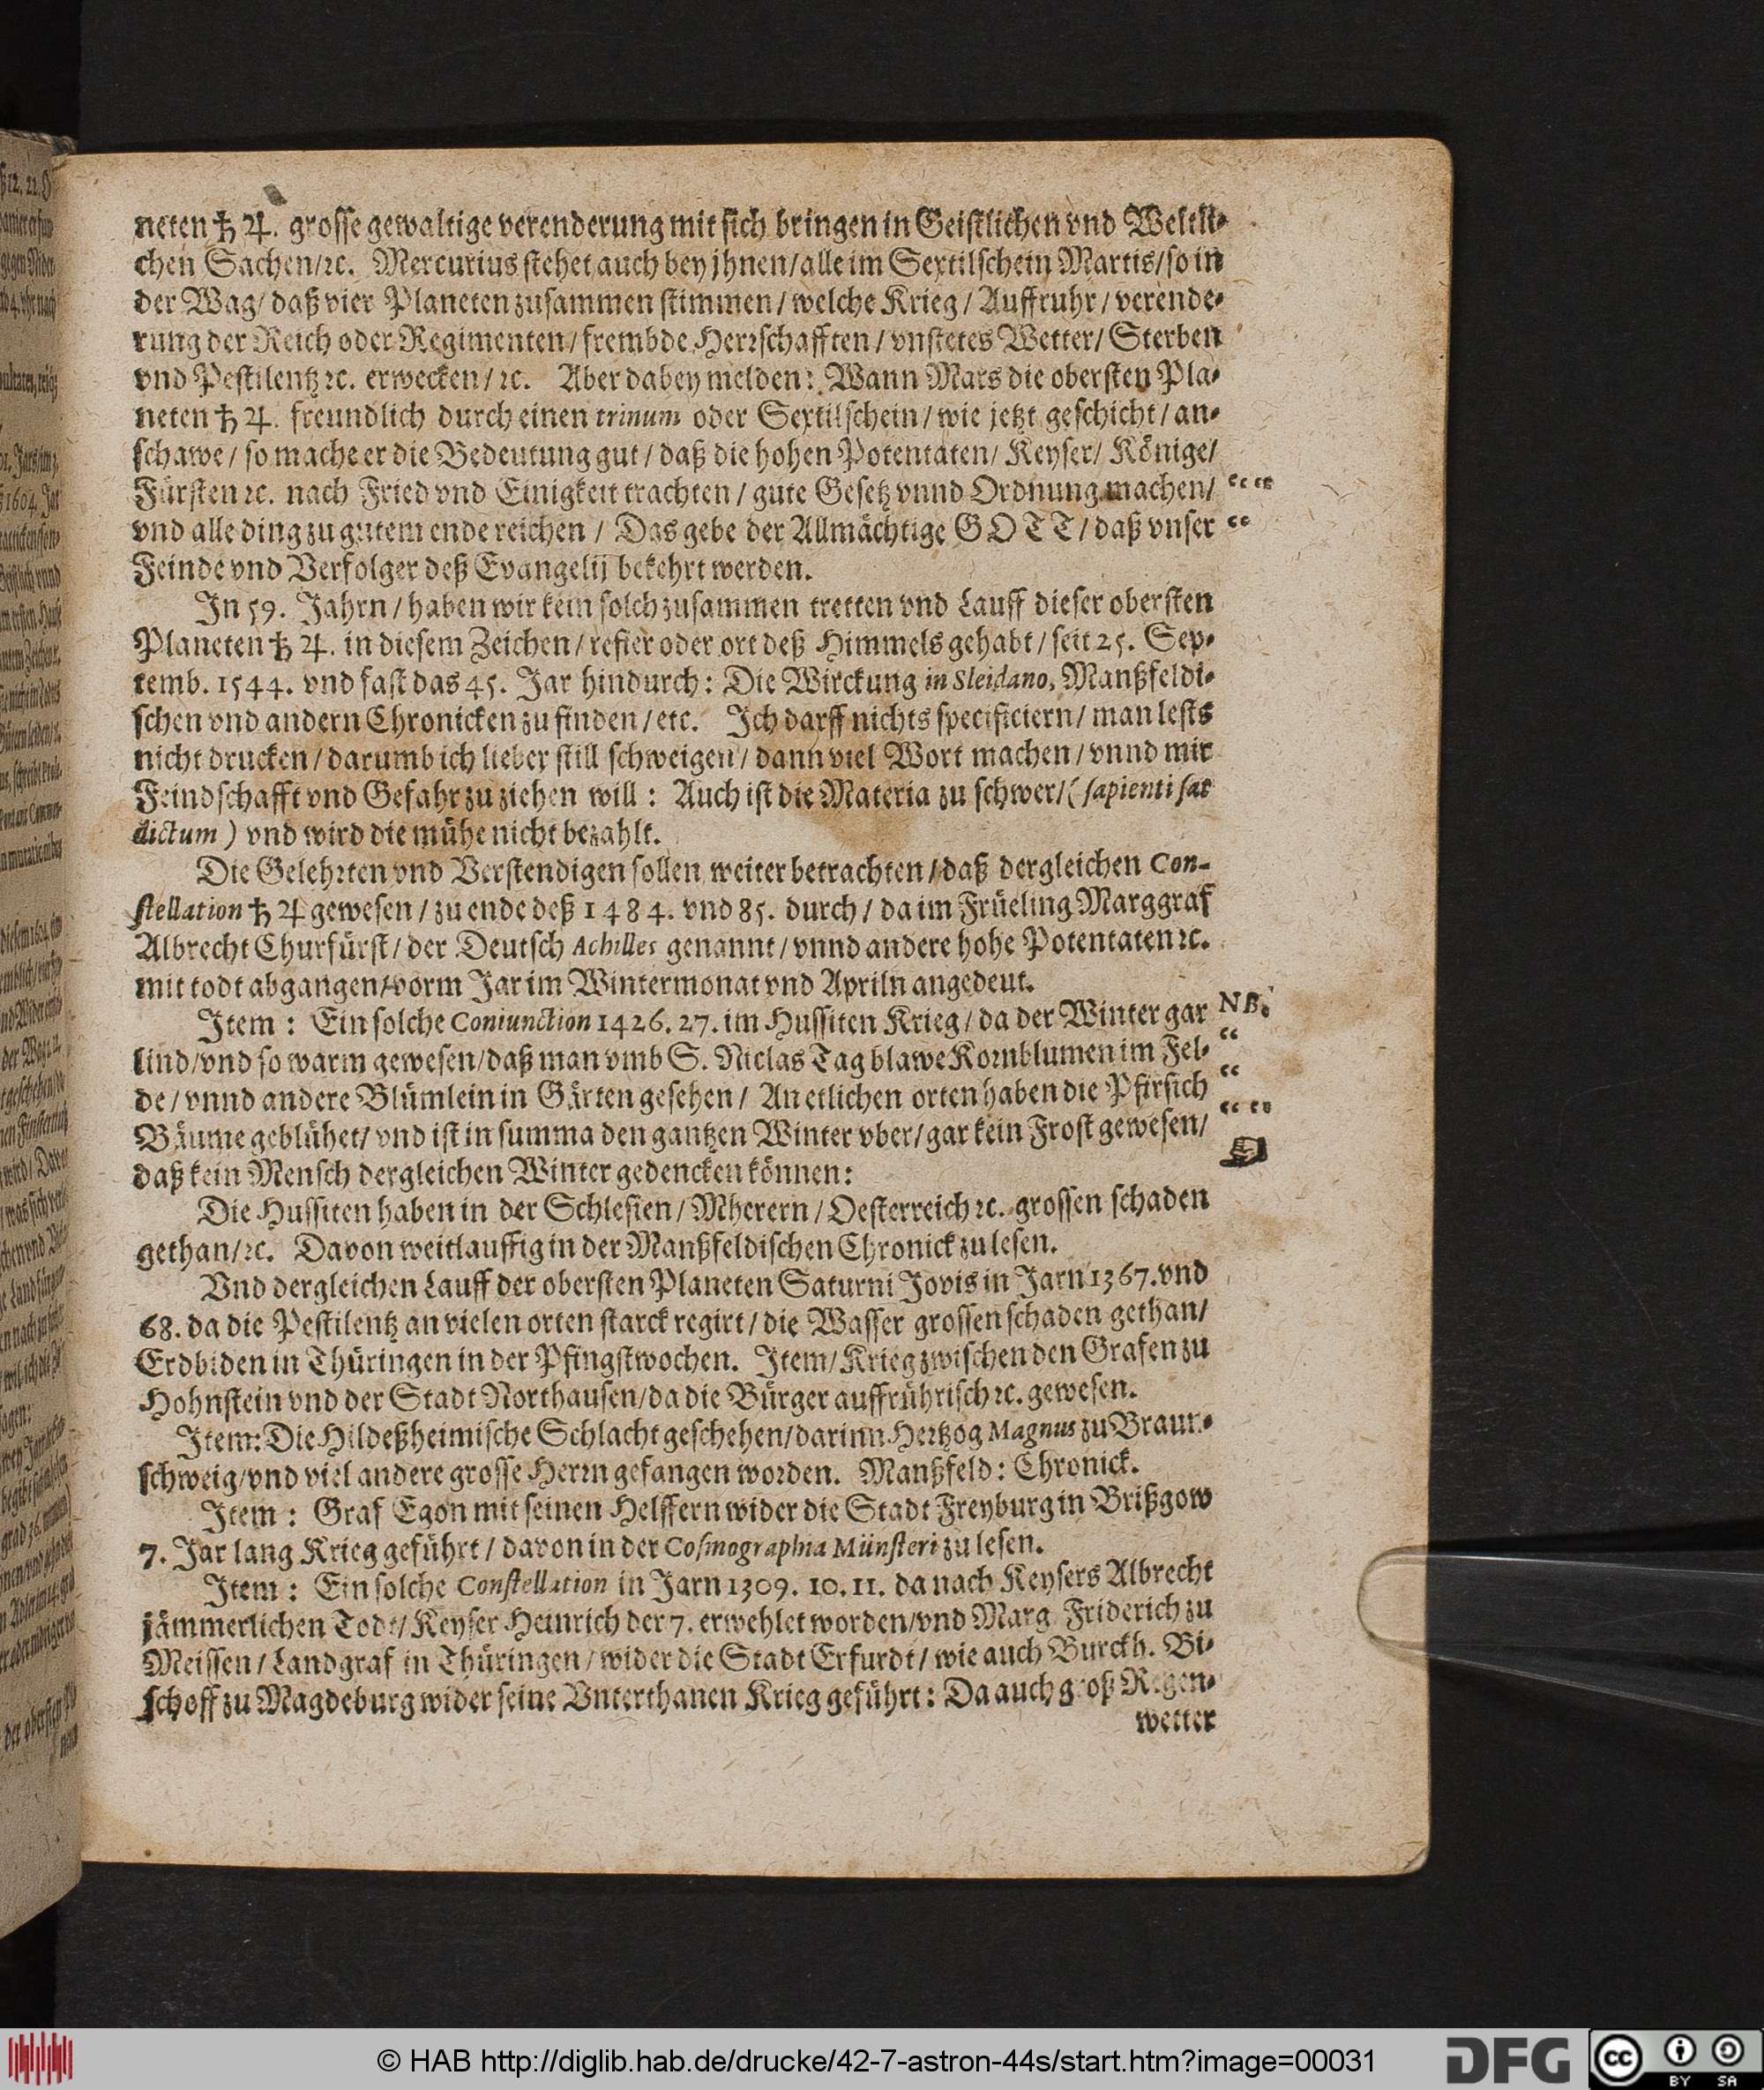 neten ♄ ♃. grosse gewaltige verenderung mit sich bringen in Geistlichen vnd Weltli-
chen Sachen/ꝛc. Mercurius stehet auch bey jhnen/alle im Sextilschein Martis/so in
der Wag/ daß vier Planeten zusammen stimmen/ welche Krieg/ Auffruhr/ verende-
rung der Reich oder Regimenten/ frembde Herrschafften/ vnstetes Wetter/ Sterben
vnd Pestilentz ꝛc. erwecken/ꝛc. Aber dabey melden: Wann Mars die obersten Pla-
neten ♄ ♃. freundlich durch einen trinum oder Sextilschein/ wie jetzt geschicht/ an-
schawe/ so mache er die Bedeutung gut/ daß die hohen Potentaten/ Keyser/ Könige/
Fürsten ꝛc. nach Fried vnd Einigkeit trachten/ gute Gesetz vnnd Ordnung machen/ “ “
vnd alle ding zu gutem ende reichen/ Das gebe der Allmächtige GOTT/ daß vnser “
Feinde vnd Verfolger deß Evangelij bekehrt werden.
In 59. Jahrn/ haben wir kein solch zusammen tretten vnd Lauff dieser obersten
Planeten ♄ ♃. in diesem Zeichen/ refier oder ort deß Himmels gehabt/ seit 25. Sep-
temb. 1544. vnd fast das 45. Jar hindurch: Die Wirckung in Sleidano, Manßfeldi-
schen vnd andern Chronicken zu finden/ etc. Ich darff nichts specificiern/ man lests
nicht drucken/ darumb ich lieber still schweigen/ dann viel Wort machen/ vnnd mir
Feindschafft vnd Gefahr zu ziehen will: Auch ist die Materia zu schwer/ (sapienti sat
dictum) vnd wird die mühe nicht bezahlt.
Die Gelehrten vnd Verstendigen sollen weiter betrachten/ daß dergleichen Con-
stellation ♄ ♃ gewesen/ zu ende deß 1484. vnd 85. durch/ da im Früeling Marggraf
Albrecht Churfürst/ der Deutsch Achilles genannt/ vnnd andere hohe Potentaten ꝛc.
mit todt abgangen/vorm Jar im Wintermonat vnd Apriln angedeut.
Item: Ein solche Coniunction 1426. 27. im Hussiten Krieg/ da der Winter gar NB.
lind/vnd so warm gewesen/daß man vmb S. Niclas Tag blawe Kornblumen im Fel- “
de/ vnnd andere Blümlein in Gärten gesehen/ An etlichen orten haben die Pfirsich “
Bäume geblühet/ vnd ist in summa den gantzen Winter vber/ gar kein Frost gewesen/ “ “
daß kein Mensch dergleichen Winter gedencken können: ☜
Die Hussiten haben in der Schlesien/ Mherern/ Oesterreich ꝛc. grossen schaden
gethan/ꝛc. Davon weitlauffig in der Manßfeldischen Chronick zu lesen.
Vnd dergleichen Lauff der obersten Planeten Saturni Jovis in Jarn 1367. vnd
68. da die Pestilentz an vielen orten starck regirt/ die Wasser grossen schaden gethan/
Erdbiden in Thüringen in der Pfingstwochen. Item/ Krieg zwischen den Grafen zu
Hohnstein vnd der Stadt Northausen/da die Bürger auffrührisch ꝛc. gewesen.
Item: Die Hildeßheimische Schlacht geschehen/darinn Hertzog Magnus zu Braun-
schweig/vnd viel andere grosse Herrn gefangen worden. Manßfeld: Chronick.
Item: Graf Egon mit seinen Helffern wider die Stadt Freyburg in Brißgow
7. Jar lang Krieg geführt/ davon in der Cosmographia Münsteri zu lesen.
Item: Ein solche Constellation in Jarn 1309. 10. 11. da nach Keysers Albrecht
jämmerlichen Todt/ Keyser Heinrich der 7. erwehlet worden/vnd Marg. Friderich zu
Meissen/ Landgraf in Thüringen/ wider die Stadt Erfurdt/ wie auch Burckh. Bi-
schoff zu Magdeburg wider seine Vnterthanen Krieg geführt: Da auch groß Regen-
wetter
© HAB http://diglib.hab.de/drucke/42-7-astron-44s/start.htm?image=00031
DFG
cc
BY SA